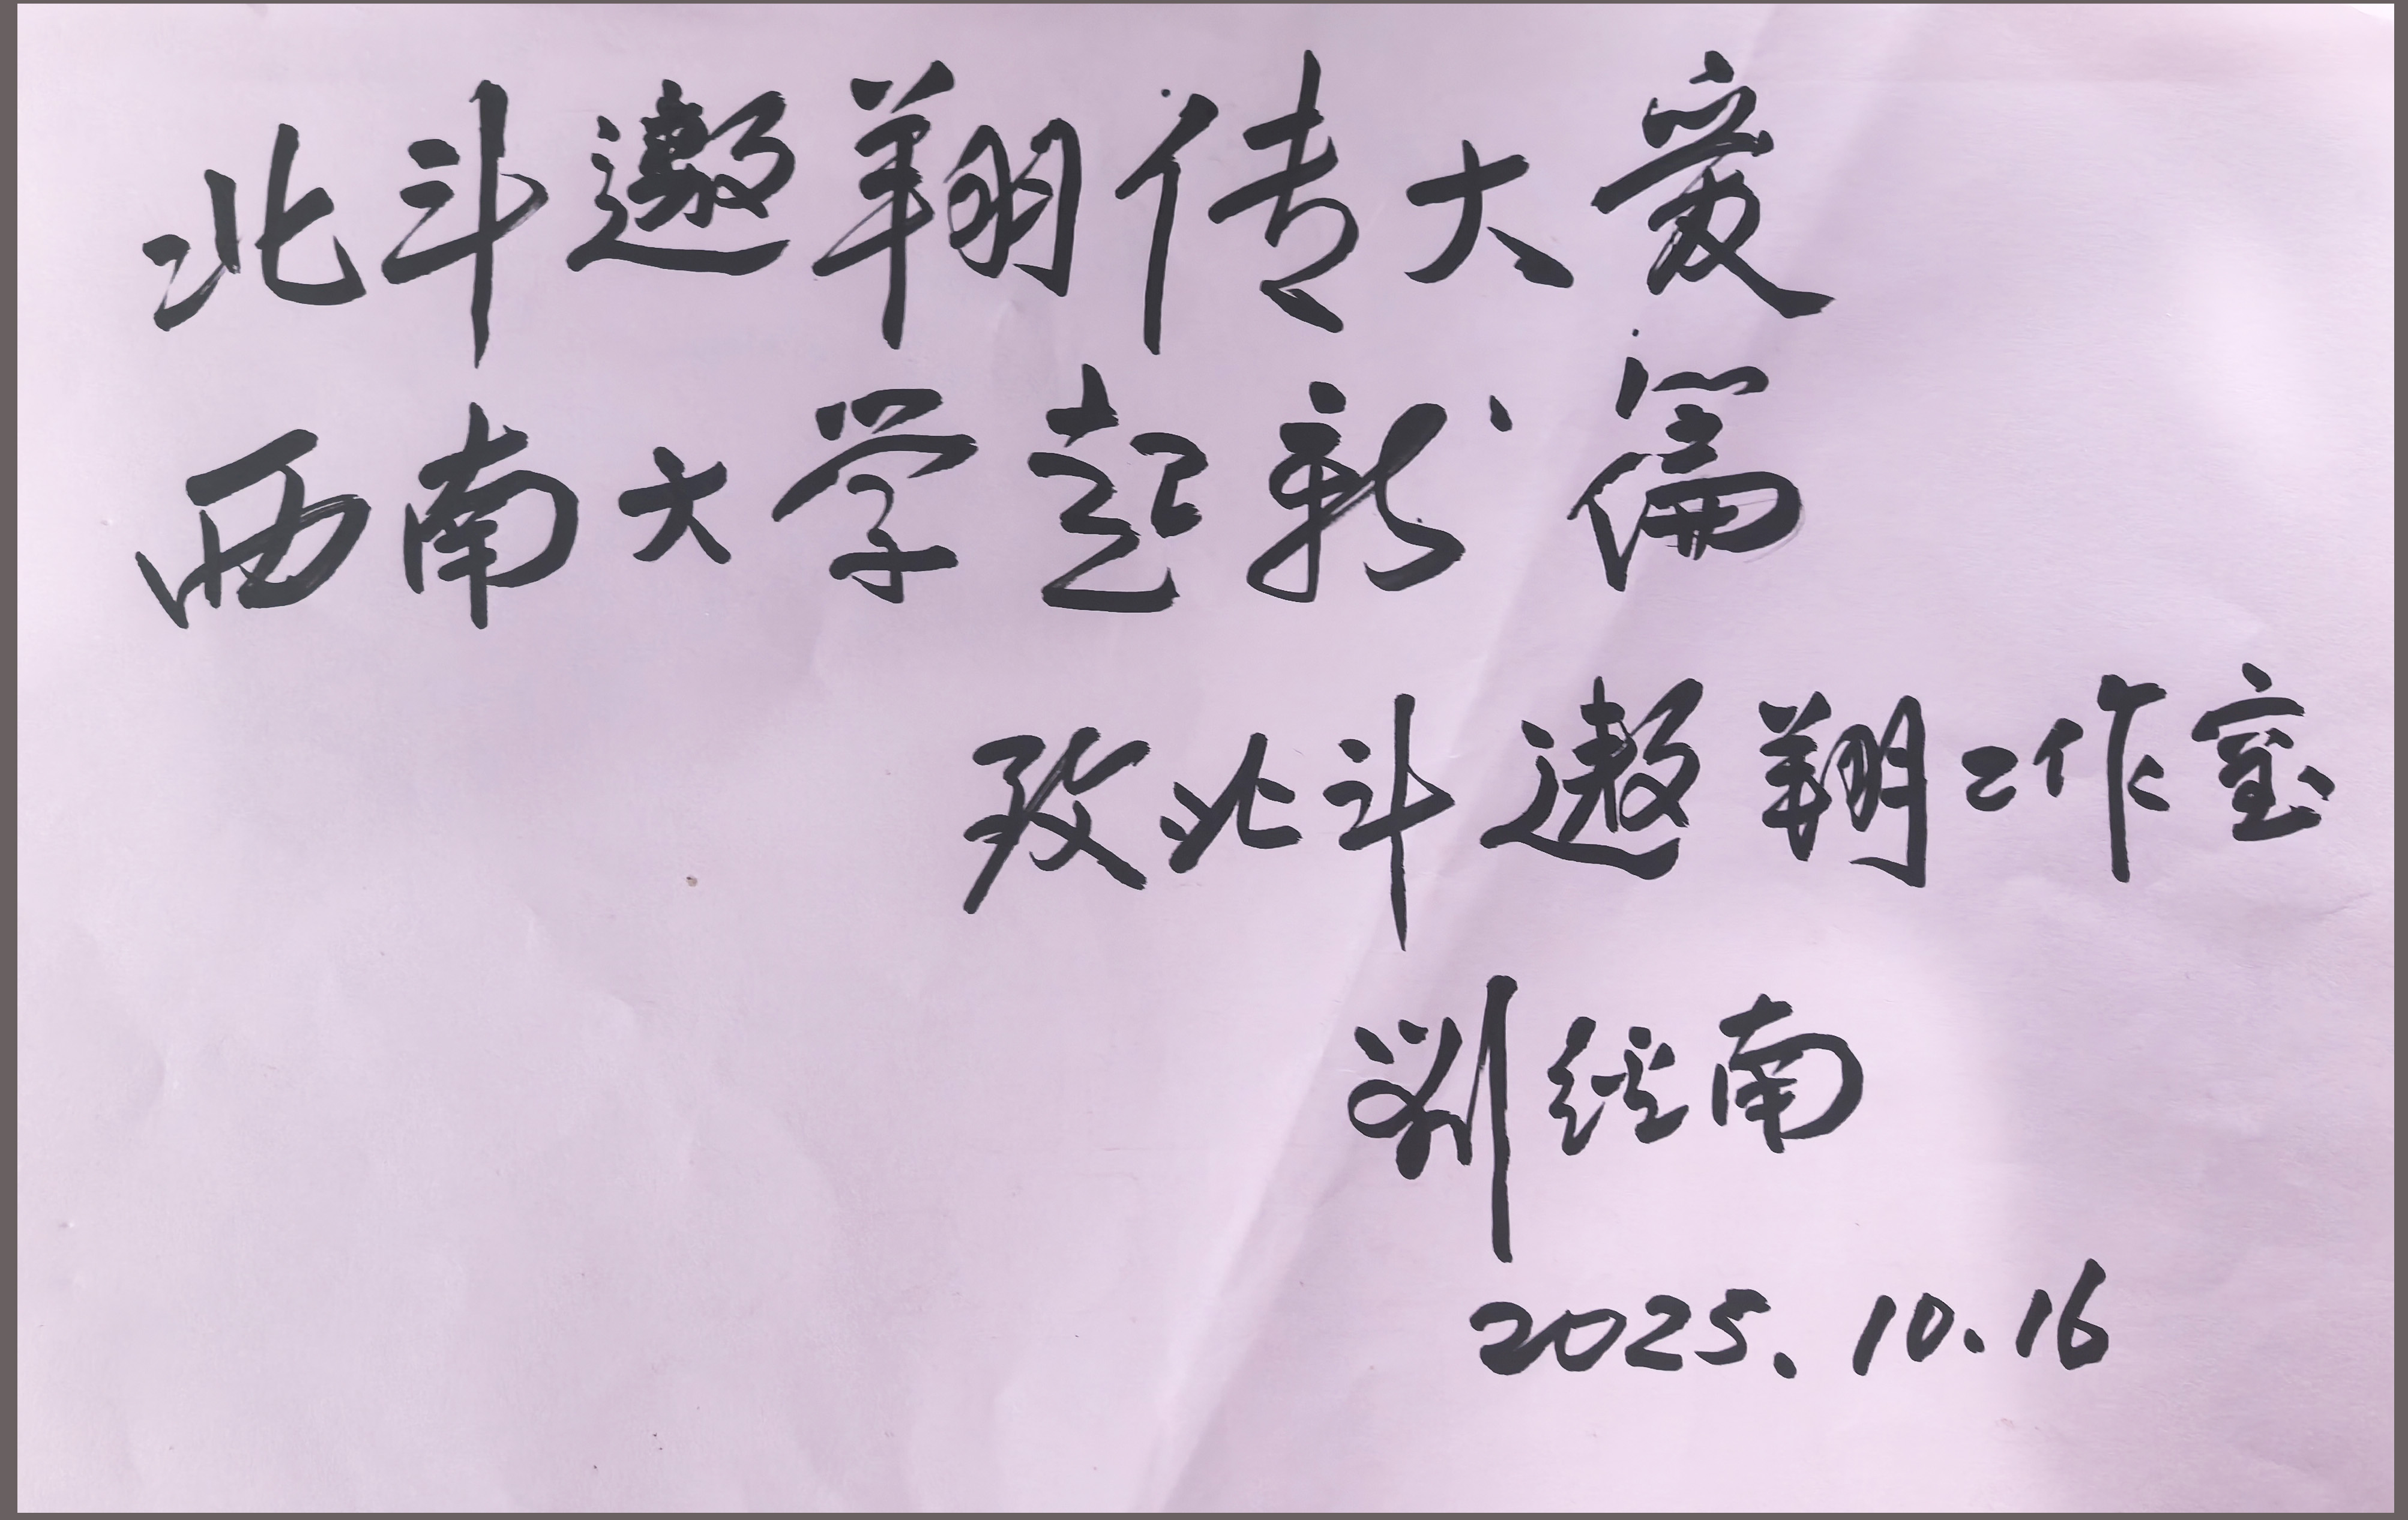 北斗遨翔传大爱
西南大学起新篇
致北斗遨翔工作室
刘经南
2025.10.16